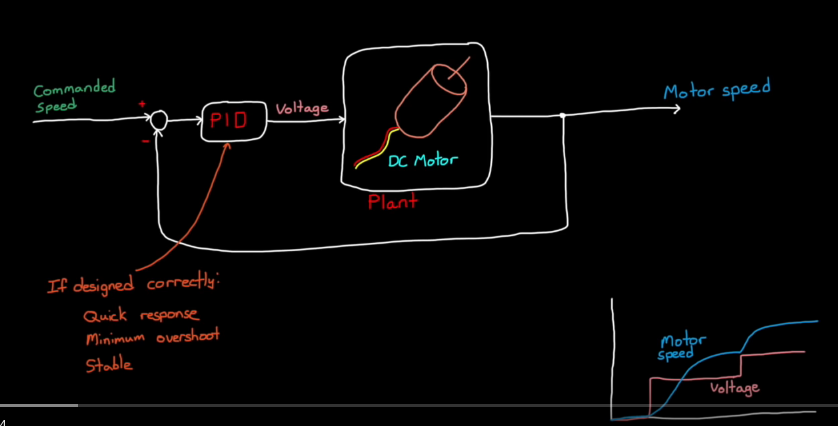 Commanded
Speed
+
-
PID
Voltage
DC Motor
Plant
Motor speed
If designed correctly:
Quick response
Minimum overshoot
Stable
Motor
speed
Voltage
4